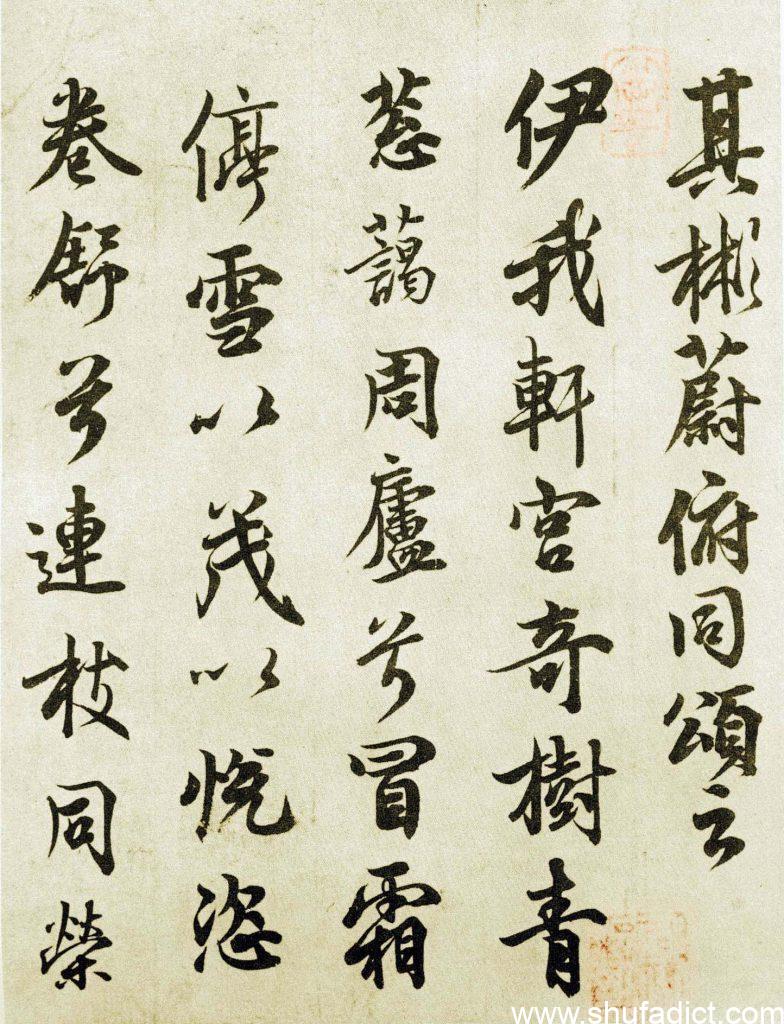 其彬蔚俯同頌云
伊我軒宮奇樹青
葱藹周廬兮冒霜
停雪以茂以悅恣
卷舒兮連枝同榮
www.shufadict.com